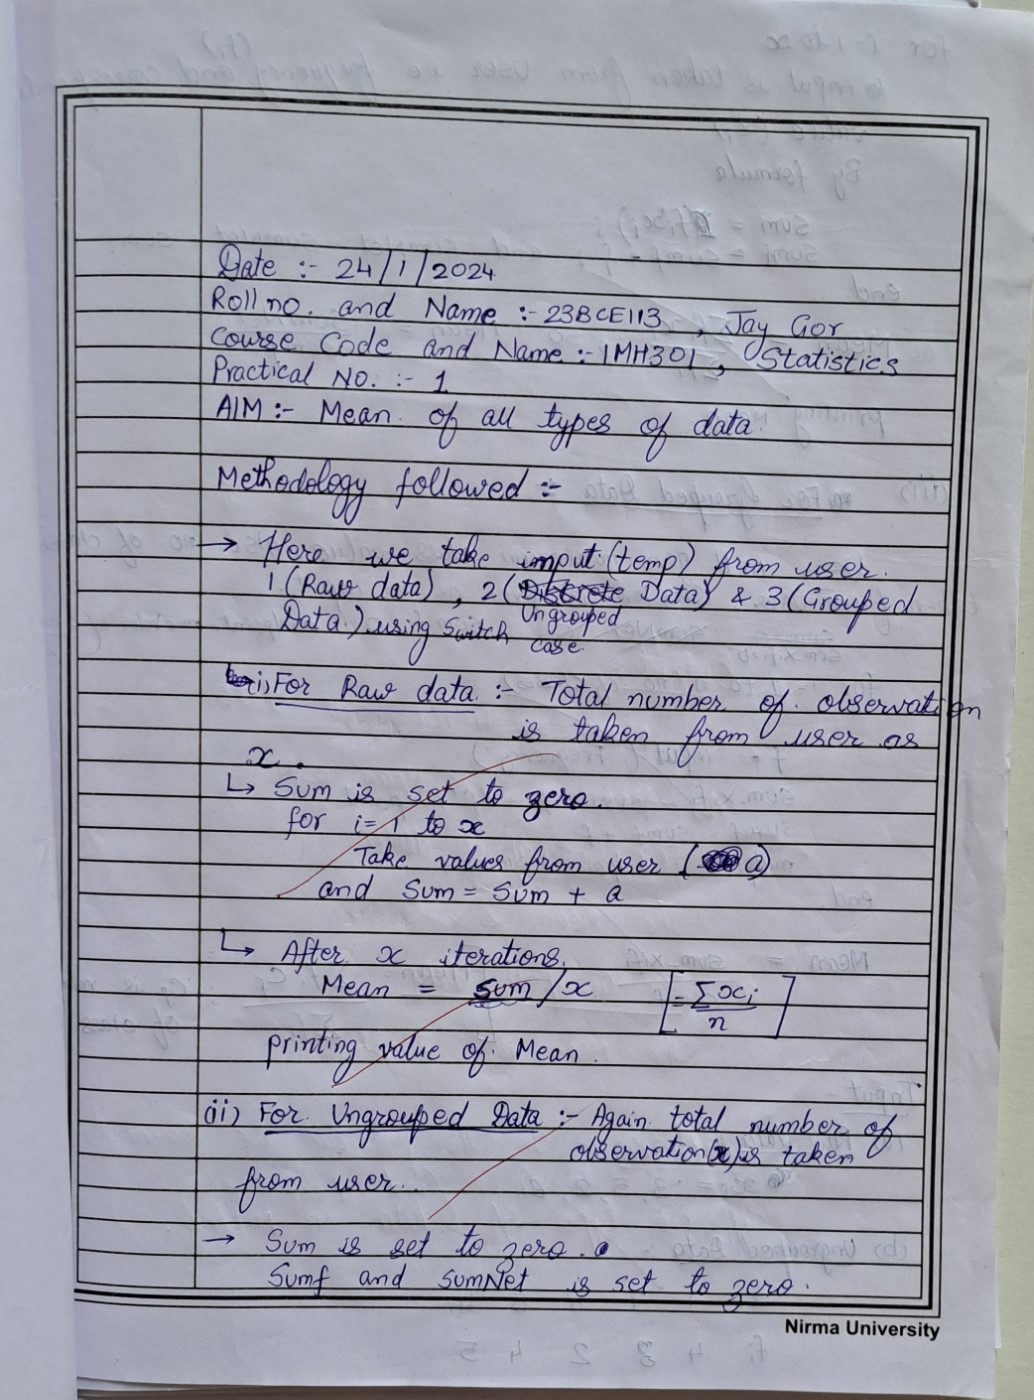 Date :- 24/1/2024
Roll no. and Name :- 23BCE113 , Jay Gor
Course Code and Name :- 1MH301, Statistics
Practical NO. :- 1
AIM :- Mean of all types of data.
Methodology followed :-
→ Here we take imput (temp) from user.
1 (Raw data) , 2 (Discrete Data) & 3 (Grouped
Ungrouped
Data.) using Switch case.
i) For Raw data :- Total number of observation
is taken from user as
x.
↳ Sum is set to zero.
for i = 1 to x
Take values from user (a)
and Sum = Sum + a
↳ After x iterations.
Mean = sum / x [= Σxi / n]
printing value of Mean.
(ii) For Ungrouped Data :- Again total number of
observation(x) is taken
from user..
→ Sum is set to zero.
Sumf and sumNet is set to zero.
Nirma University